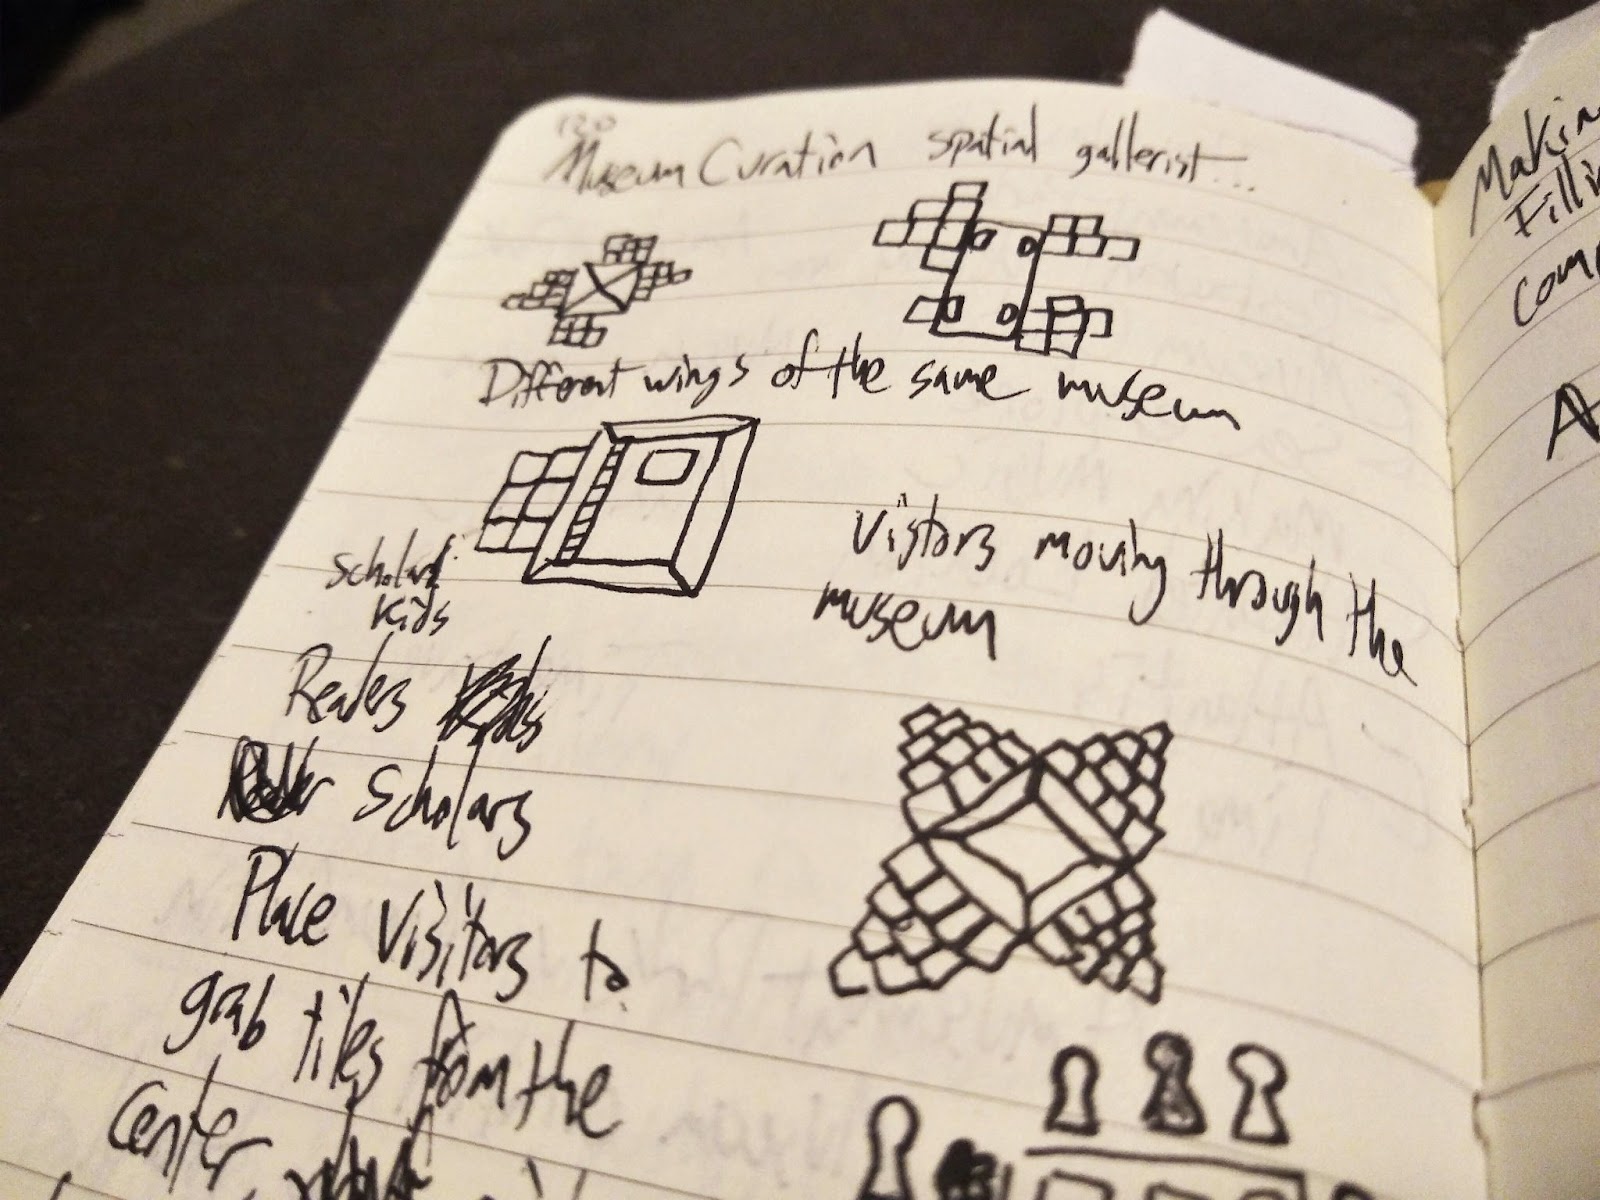 120
Museum Curation spatial gallerist...
Different wings of the same museum
Scholars
Kids
Vistors moving through the
museum
Readers
Scholars
Place Visitors to
grab tiles from the
center
Making
Filli
Comp
A